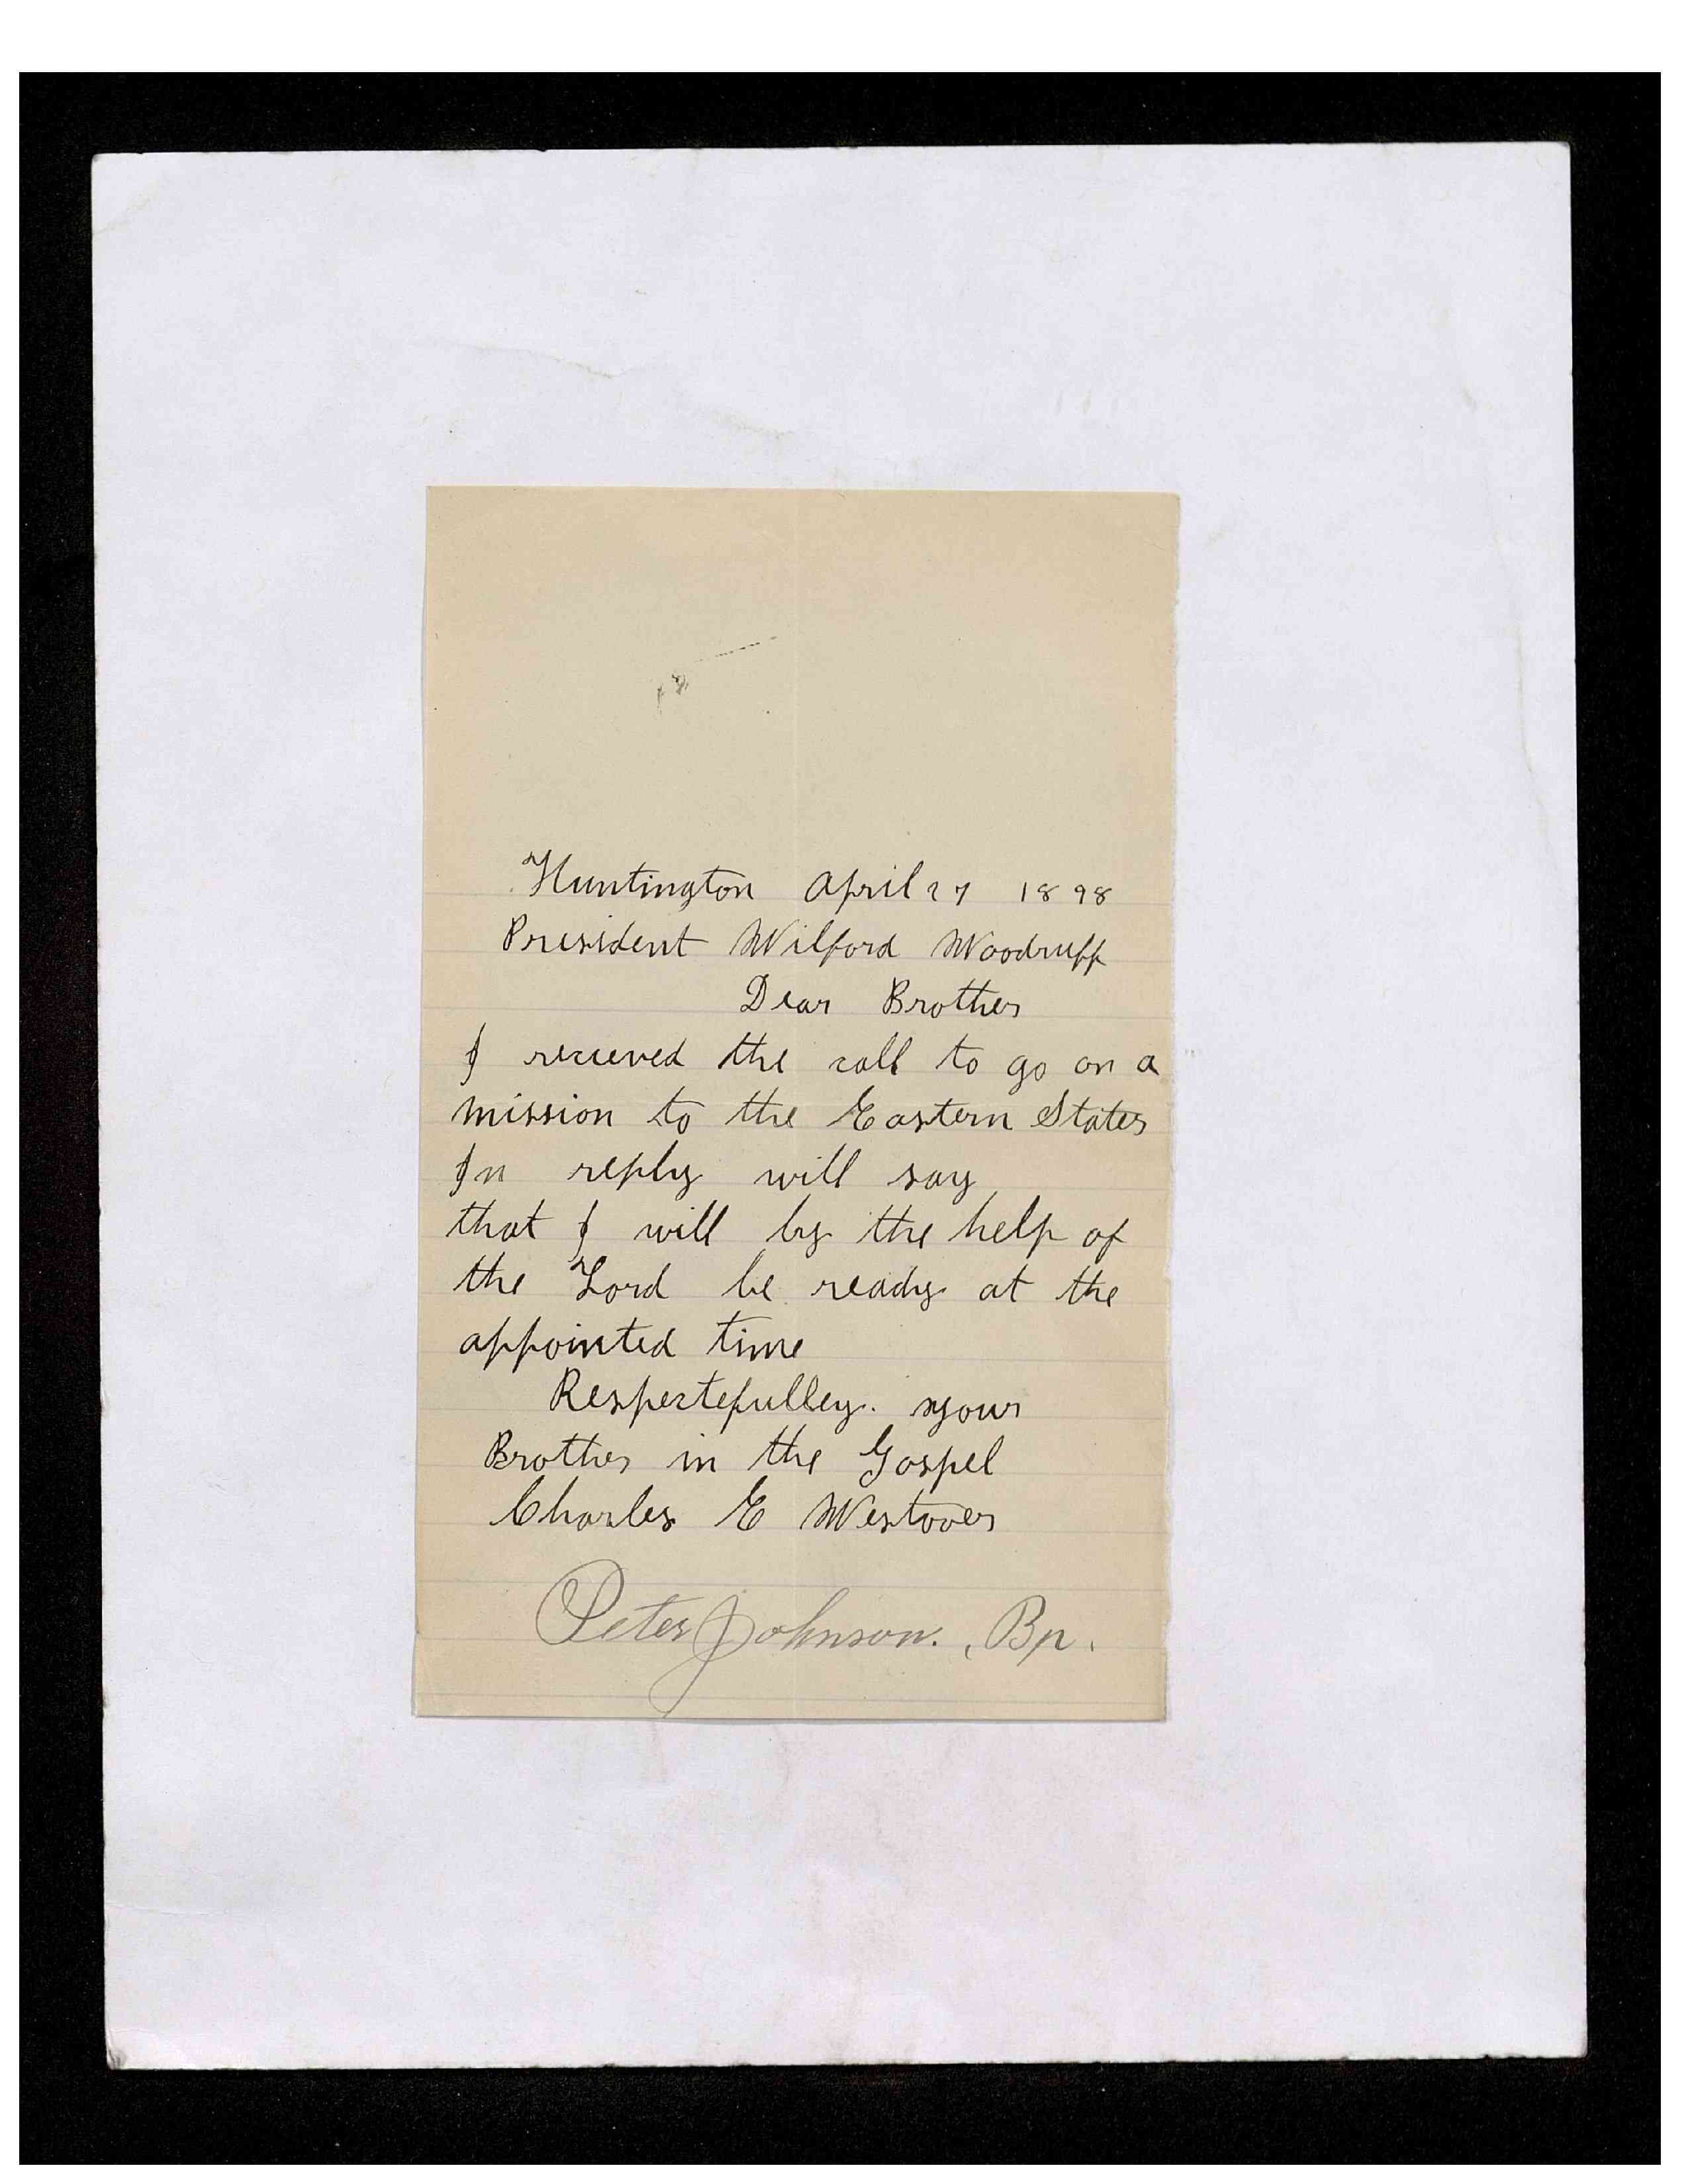 Huntington April 27 1898
President Wilford Woodruff
Dear Brother
I recieved the call to go on a
mission to the Eastern States
In reply will say
that I will by the help of
the Lord be ready at the
appointed time
Respectefulley. your
Brother in the Gospel
Charles E Westover
Peter Johnson., Bp.